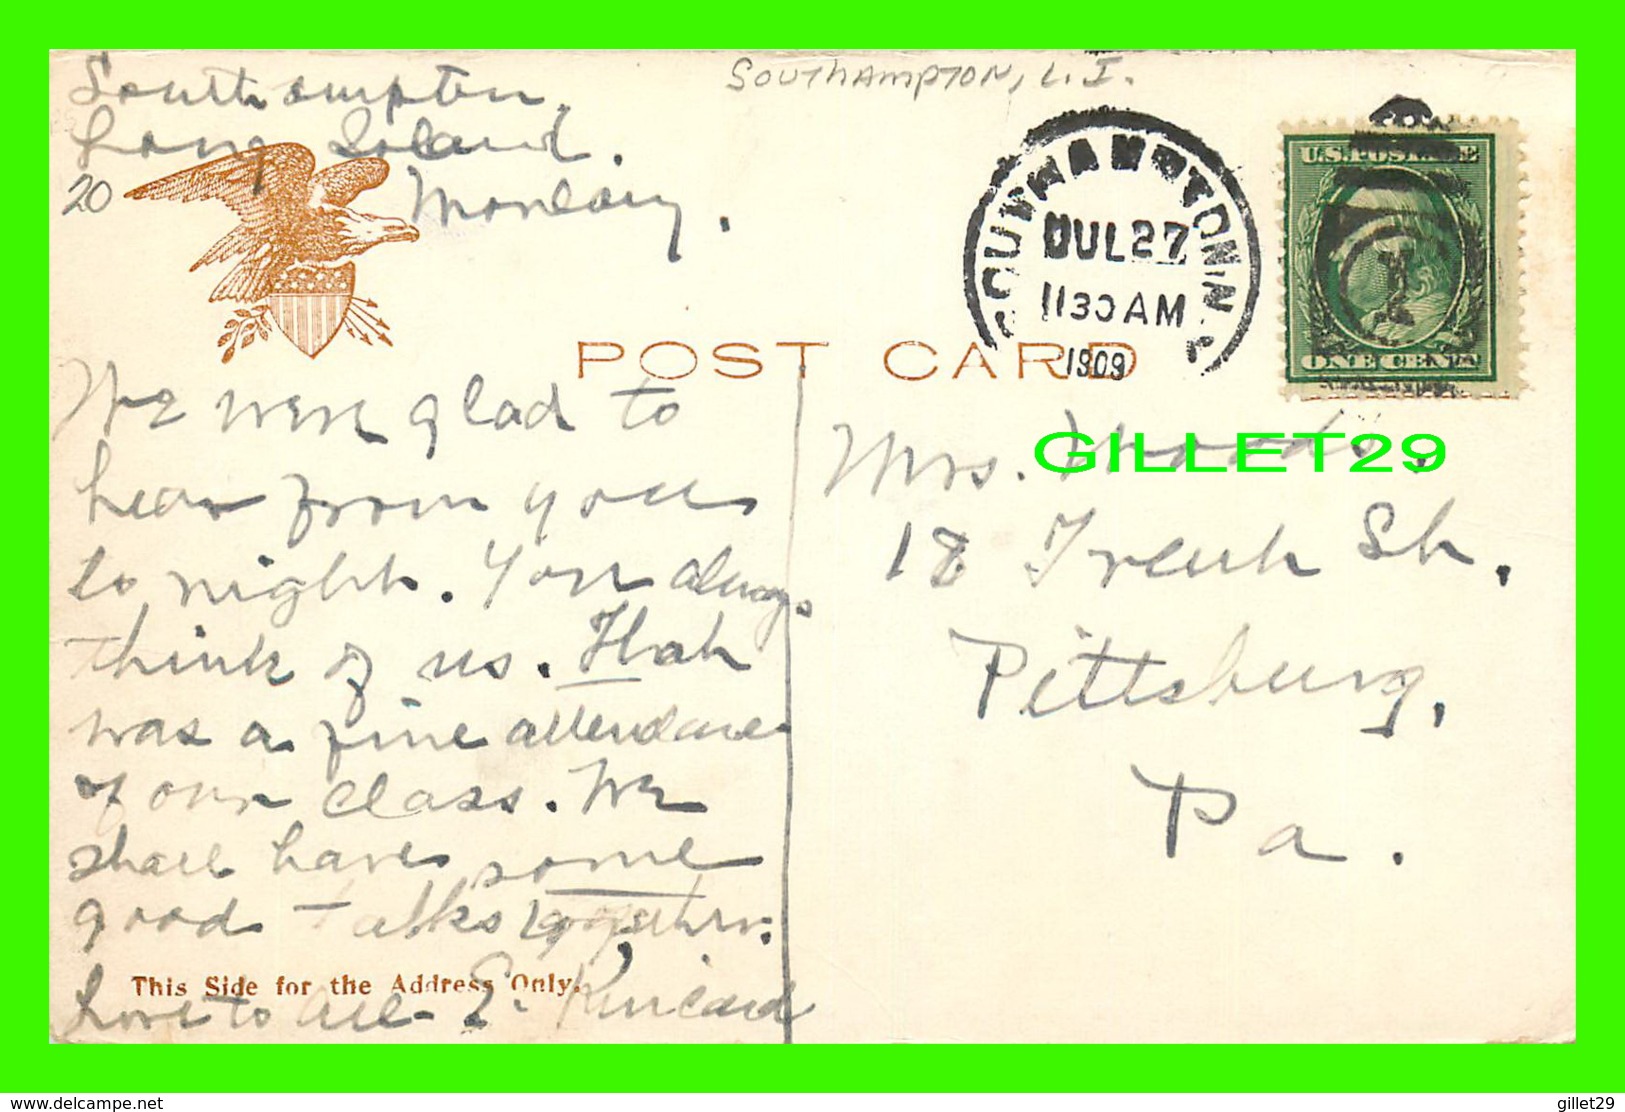 Southampton, L. I.
Southampton,
Long Island.
20
Monday.
SOUTHAMPTON, N.Y.
JUL 27
1130 AM
1909
U.S. POSTAGE
1
ONE CENT
POST CARD
We were glad to
hear from you
to night. You always
think of us. That
was a fine attendance
of our class. We
shall have some
good talks together.
This Side for the Address Only.
Love to all - E. Kincaid
Mrs. Woods.
GILLET29
18 French St.
Pittsburg,
Pa.
www.delcampe.net
gillet29